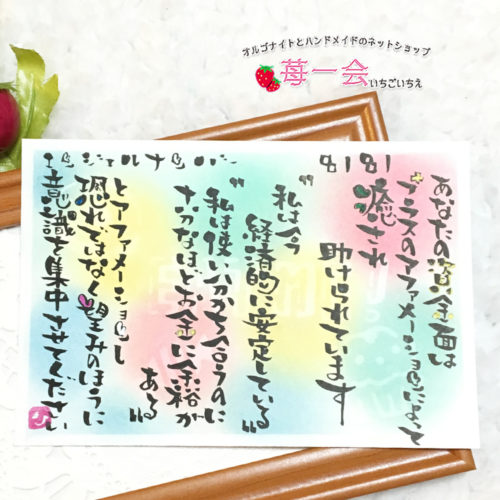 オルゴナイトとハンドメイドのネットショップ
苺一会 いちごいちえ
エンジェルナンバー 8181
あなたの資金面は
プラスのアファメーションによって
癒され
助けられています
"私は今
経済的に安定している"
"私は使い分かち合うのに
十分なほどお金に余裕が
ある"
とアファメーションし
恐れではなく望みのほうに
意識を集中させてください